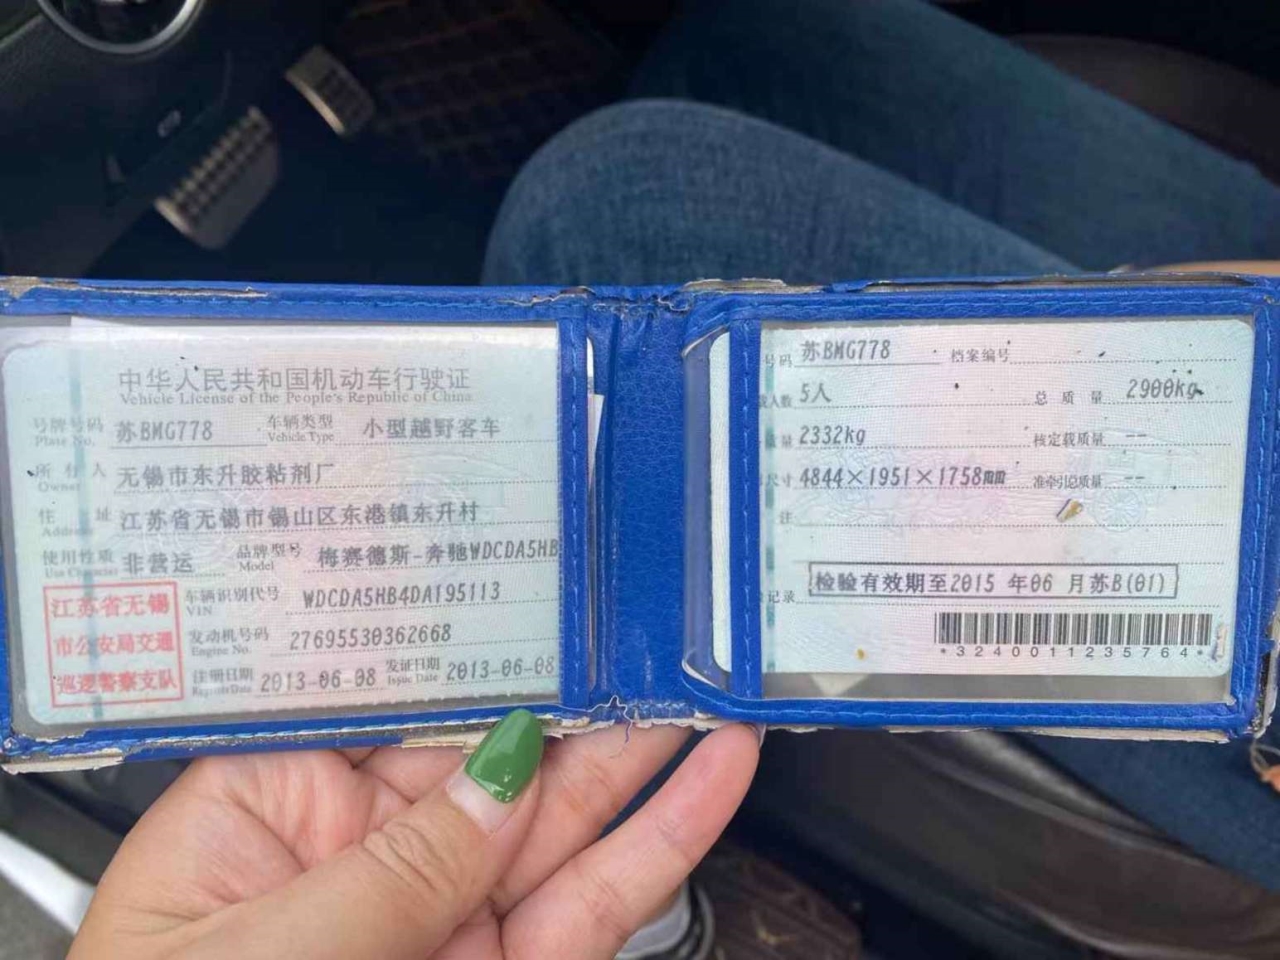 中华人民共和国机动车行驶证
Vehicle License of the People's Republic of China
号牌号码 苏BMG778 车辆类型 小型越野客车
Plate No. Vehicle Type
所有人 无锡市东升胶粘剂厂
Owner
住址 江苏省无锡市锡山区东港镇东升村
Address
使用性质 非营运 品牌型号 梅赛德斯-奔驰WDCDA5HB
Use Character Model
江苏省无锡
市公安局交通
巡逻警察支队
车辆识别代号 WDCDA5HB4DA195113
VIN
发动机号码 27695530362668
Engine No.
注册日期 2013-06-08 发证日期 2013-06-08
Register Date Issue Date
号码 苏BMG778 档案编号
人数 5人 总质量 2900kg
量 2332kg 核定载质量 --
尺寸 4844×1951×1758mm 准牵引总质量 --
注
记录 检验有效期至2015 年06 月苏B(01)
*3240011235764*